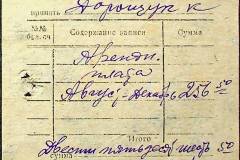 принять Дорощук К
№№ бух. сч.
Содержание записи
Сумма
Аренд.
плата
Август-Декабрь 256 50
Итого
сумма Двести пятьдесят шесть 50